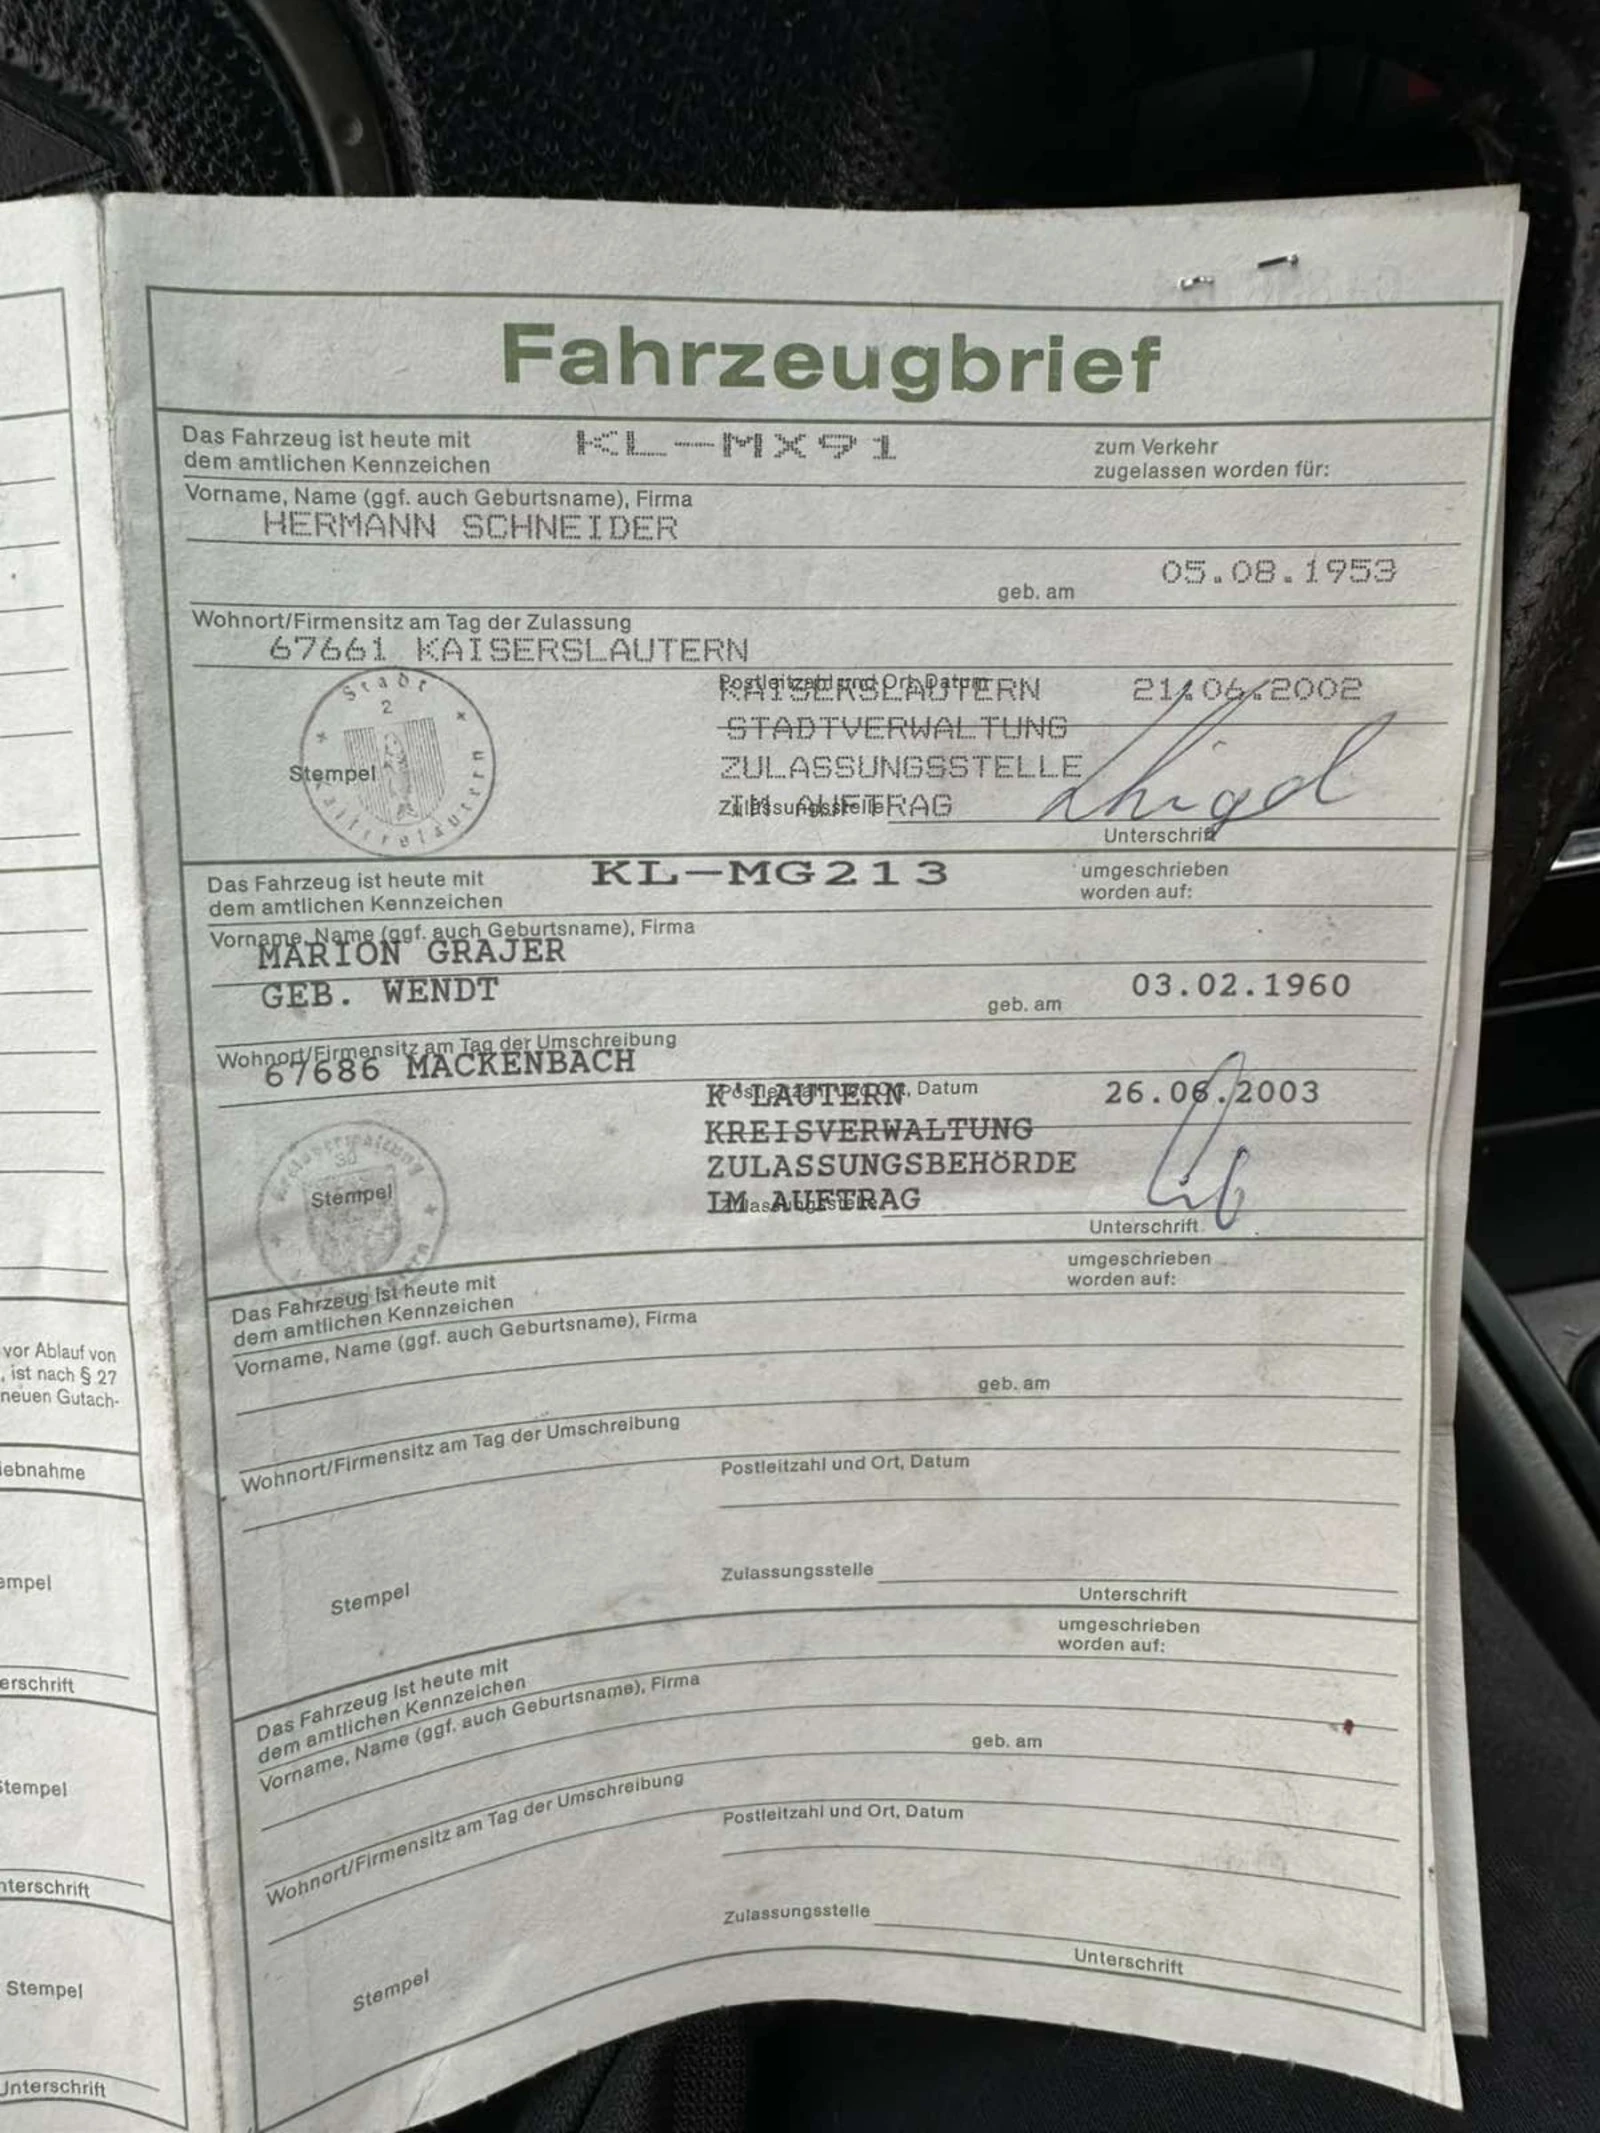 Fahrzeugbrief
Das Fahrzeug ist heute mit
dem amtlichen Kennzeichen
KL-MX91
zum Verkehr
zugelassen worden für:
Vorname, Name (ggf. auch Geburtsname), Firma
HERMANN SCHNEIDER
geb. am
05.08.1953
Wohnort/Firmensitz am Tag der Zulassung
67661 KAISERSLAUTERN
Postleitzahl und Ort, Datum
KAISERSLAUTERN 21.06.2002
STADTVERWALTUNG
ZULASSUNGSSTELLE
Zulassungsstelle
IM AUFTRAG
Stadt
2
Kaiserslautern
Stempel
Unterschrift
Das Fahrzeug ist heute mit
dem amtlichen Kennzeichen
KL-MG213
umgeschrieben
worden auf:
Vorname, Name (ggf. auch Geburtsname), Firma
MARION GRAJER
GEB. WENDT
geb. am
03.02.1960
Wohnort/Firmensitz am Tag der Umschreibung
67686 MACKENBACH
Postleitzahl und Ort, Datum
K'LAUTERN 26.06.2003
KREISVERWALTUNG
ZULASSUNGSBEHÖRDE
Zulassungsstelle
IM AUFTRAG
Kreisverwaltung
Stempel
Unterschrift
Das Fahrzeug ist heute mit
dem amtlichen Kennzeichen
umgeschrieben
worden auf:
Vorname, Name (ggf. auch Geburtsname), Firma
geb. am
Wohnort/Firmensitz am Tag der Umschreibung
Postleitzahl und Ort, Datum
Zulassungsstelle
Stempel
Unterschrift
Das Fahrzeug ist heute mit
dem amtlichen Kennzeichen
umgeschrieben
worden auf:
Vorname, Name (ggf. auch Geburtsname), Firma
geb. am
Wohnort/Firmensitz am Tag der Umschreibung
Postleitzahl und Ort, Datum
Zulassungsstelle
Stempel
Unterschrift
vor Ablauf von
, ist nach § 27
neuen Gutach-
iebnahme
empel
erschrift
Stempel
nterschrift
Stempel
Unterschrift